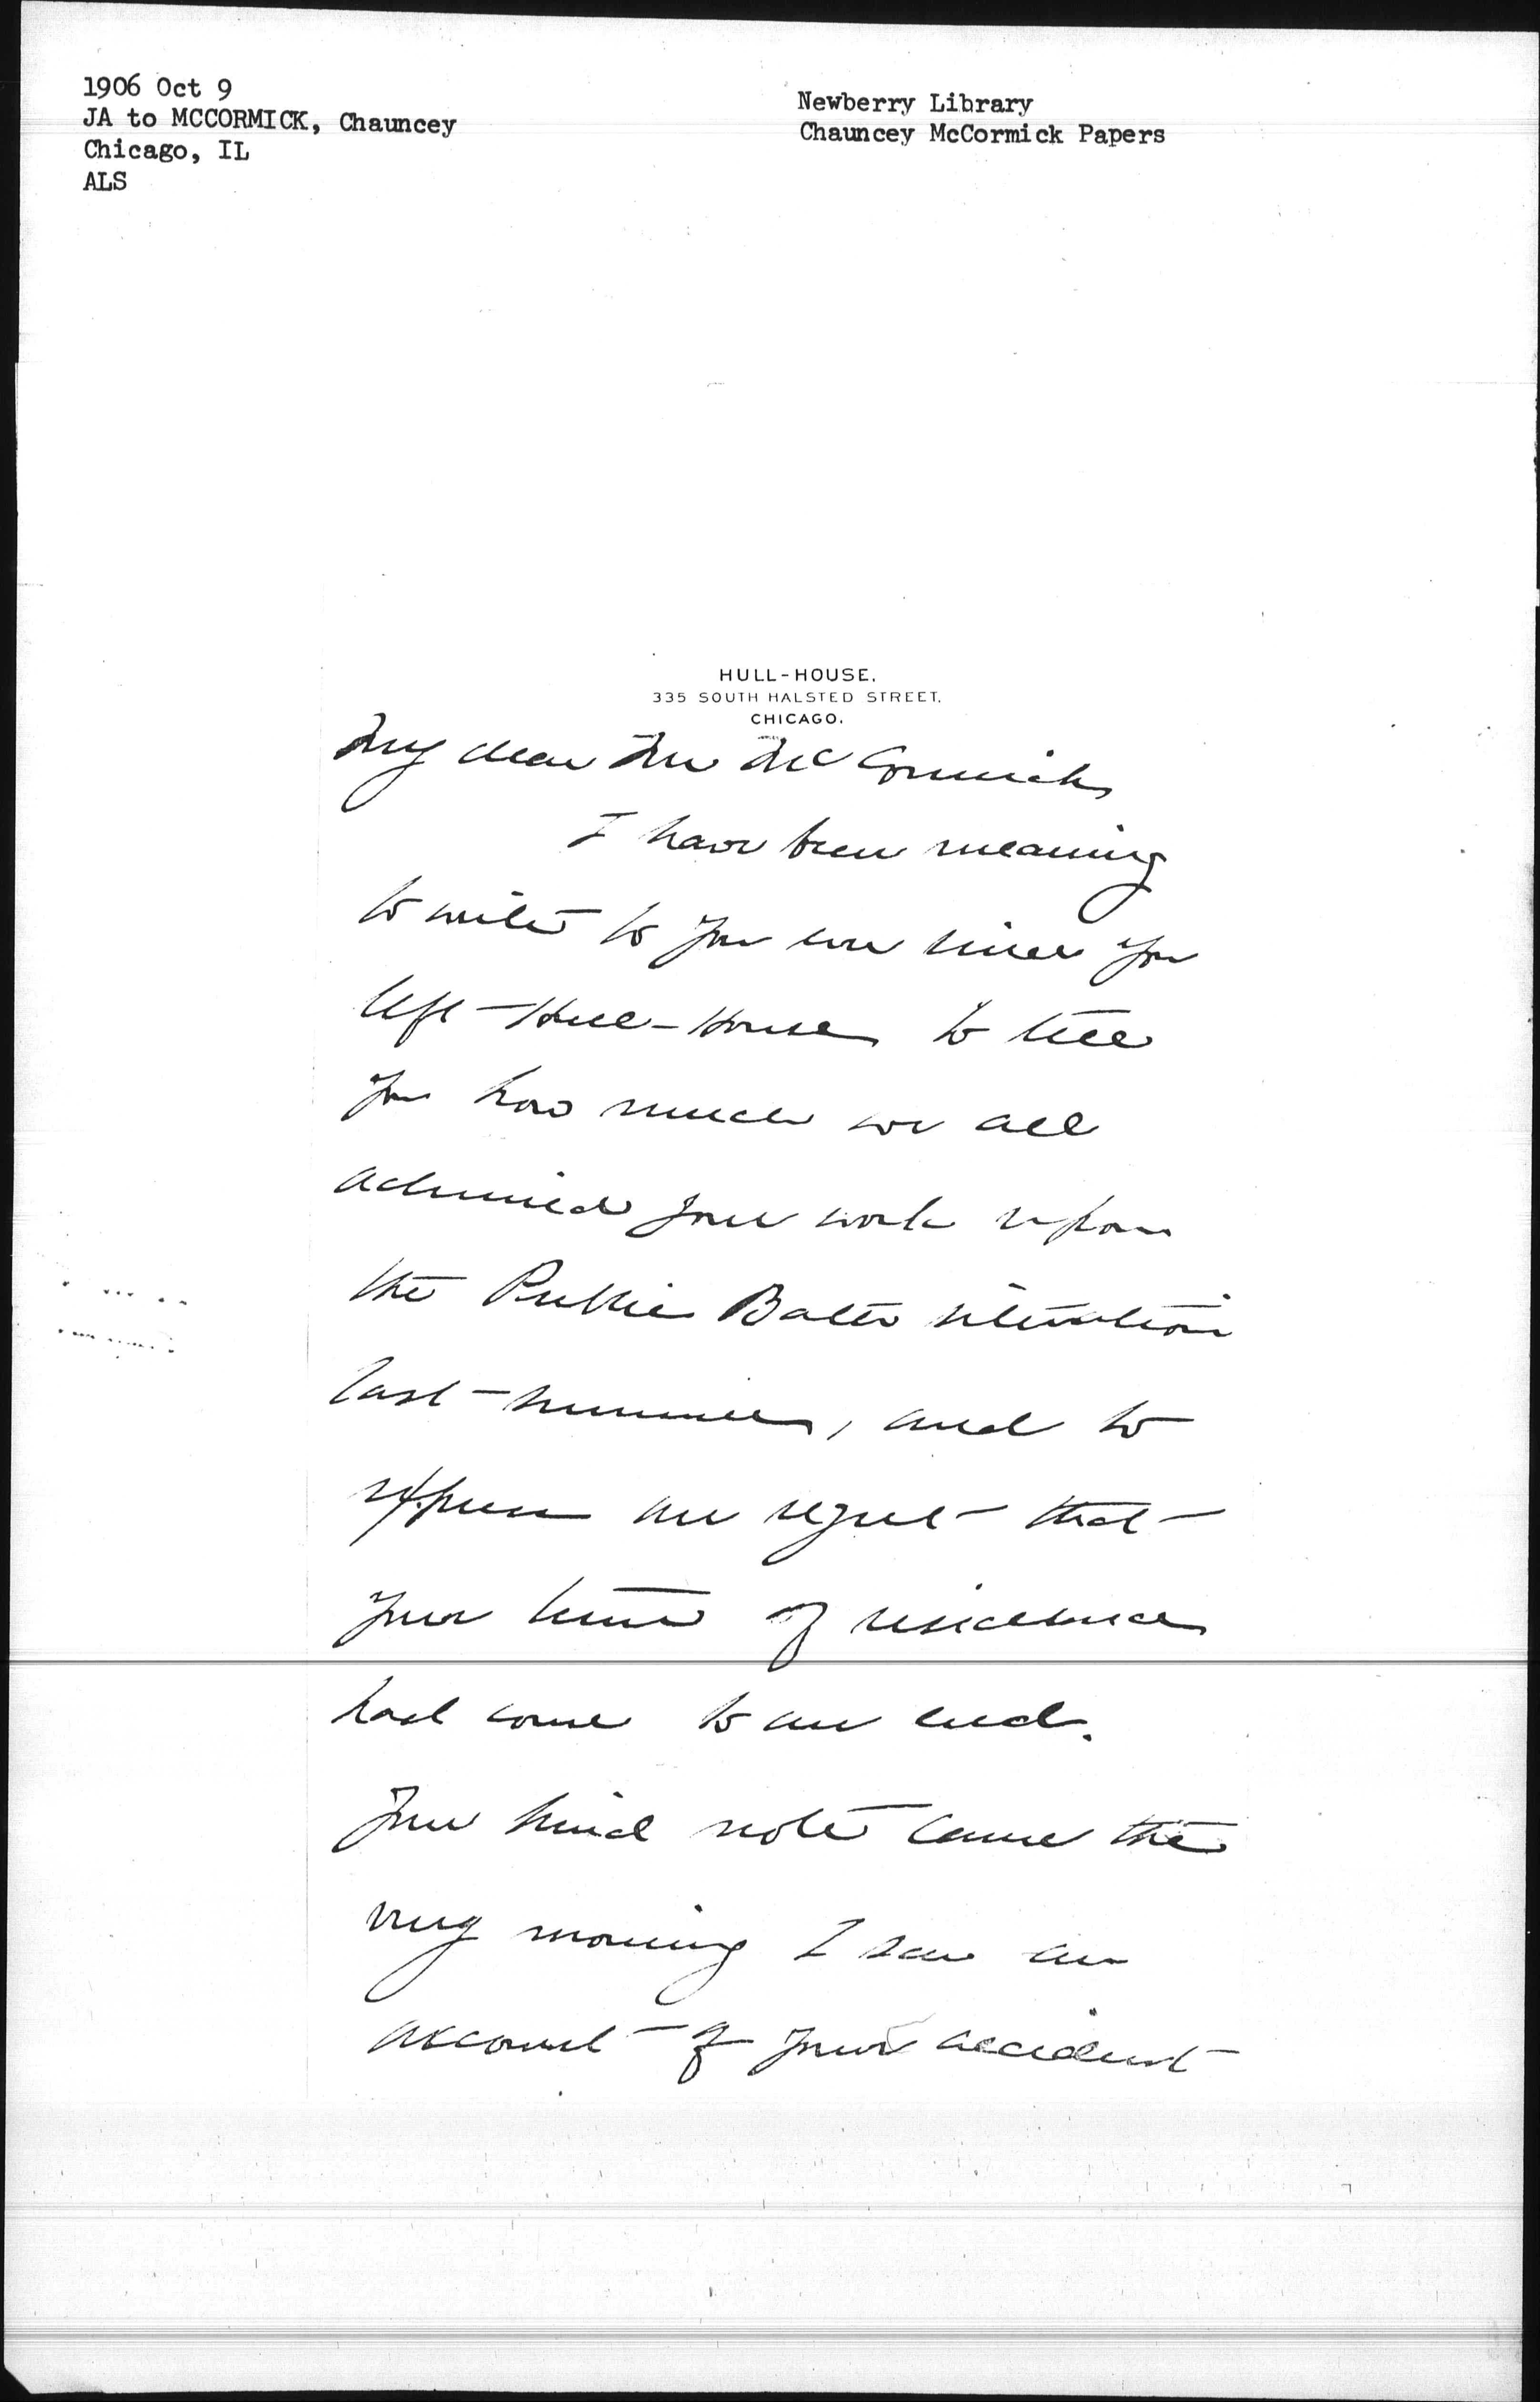 1906 Oct 9
JA to MCCORMICK, Chauncey
Chicago, IL
ALS
Newberry Library
Chauncey McCormick Papers
HULL-HOUSE.
335 SOUTH HALSTED STREET.
CHICAGO.
My dear Mr McCormick
I have been meaning
to write to you ever since you
left Hull-House to tell
you how much we all
admired your work upon
the Public Baths situation
last summer, and to
express our regret that
your time of residence
had come to an end.
Your kind note came the
very morning I saw an
account of your accident